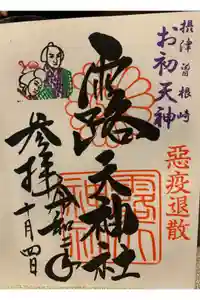 摂津曽根崎
お初天神
惡疫退散
露
天神社
奉拝
令和二年
十月四日